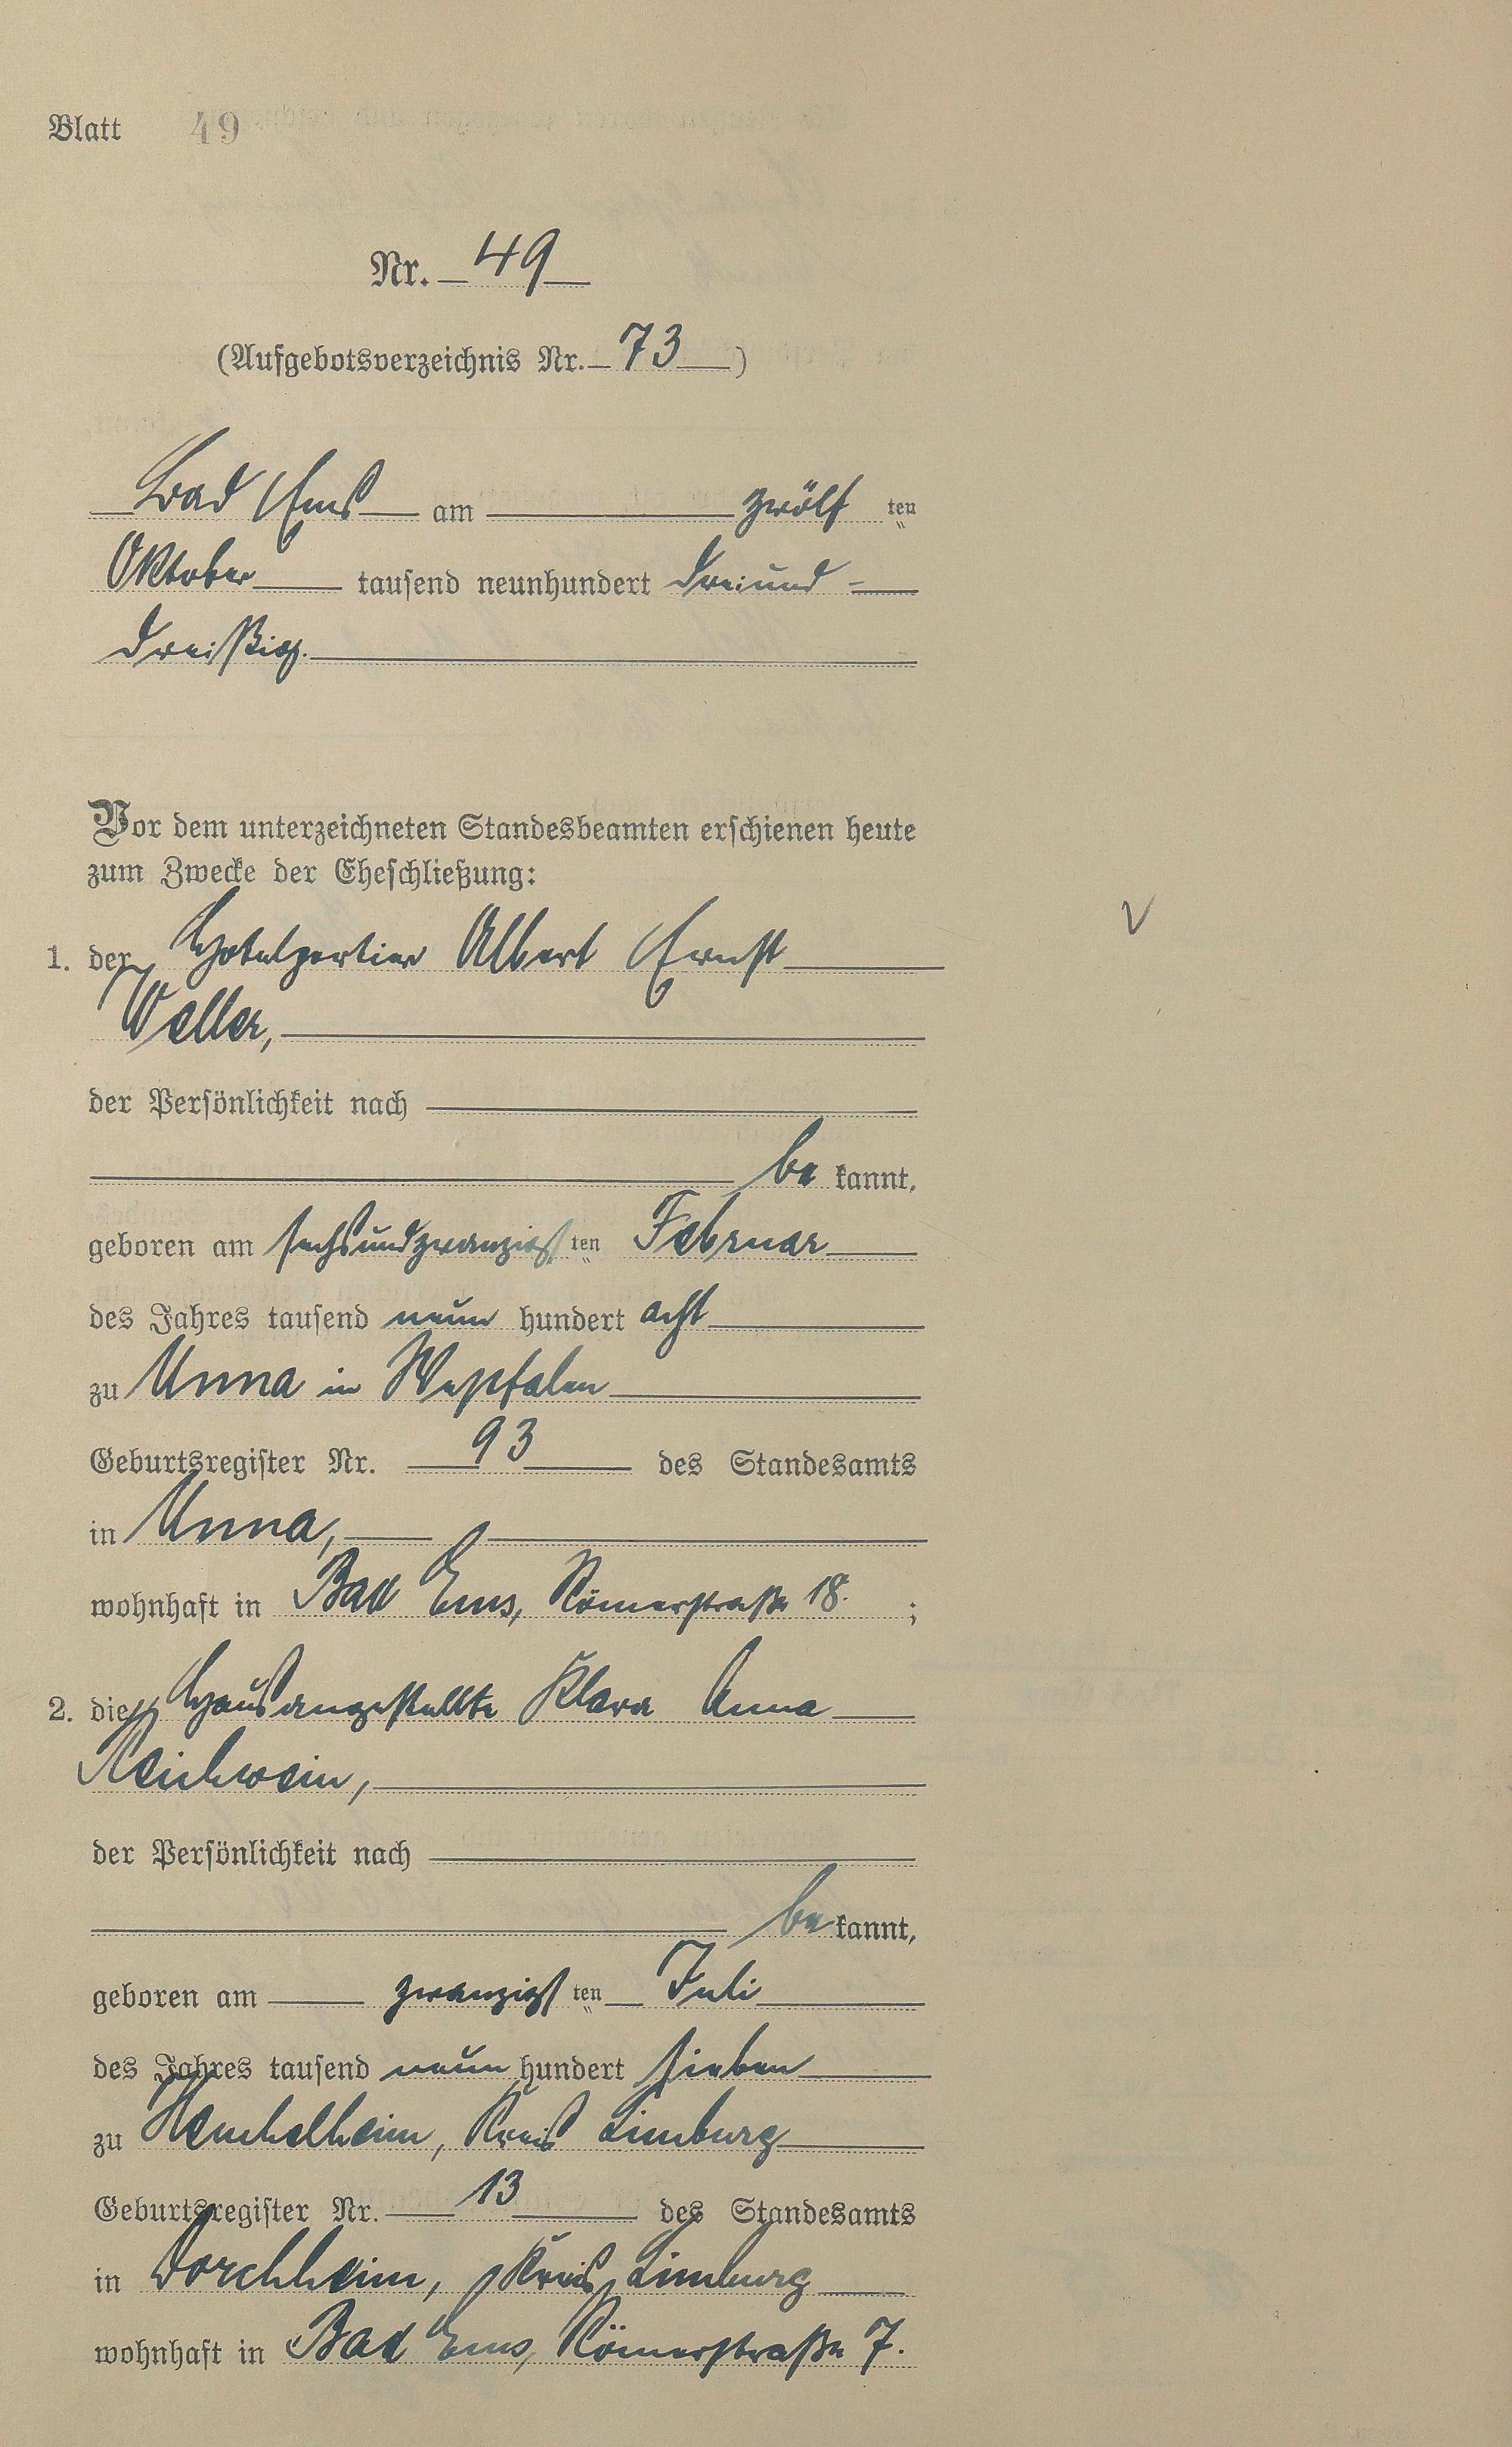 Blatt 49
Nr. 49
(Aufgebotsverzeichnis Nr. 73)
Bad Ems am zwölf ten
Oktober tausend neunhundert dreiund-
dreißig.
Vor dem unterzeichneten Standesbeamten erschienen heute
zum Zwecke der Eheschließung:
1. der Hotelportier Albert Ernst
Weller,
der Persönlichkeit nach
be kannt,
geboren am sechsundzwanzigsten Februar
des Jahres tausend neun hundert acht
zu Unna in Westfalen
Geburtsregister Nr. 93 des Standesamts
in Unna,
wohnhaft in Bad Ems, Römerstraße 18. ;
2. die Hausangestellte Klara Anna
Reichwein,
der Persönlichkeit nach
be kannt,
geboren am zwanzigsten Juli
des Jahres tausend neun hundert sieben
zu Heuchelheim, Kreis Limburg
Geburtsregister Nr. 13 des Standesamts
in Dorchheim, Kreis Limburg
wohnhaft in Bad Ems, Römerstraße 7.